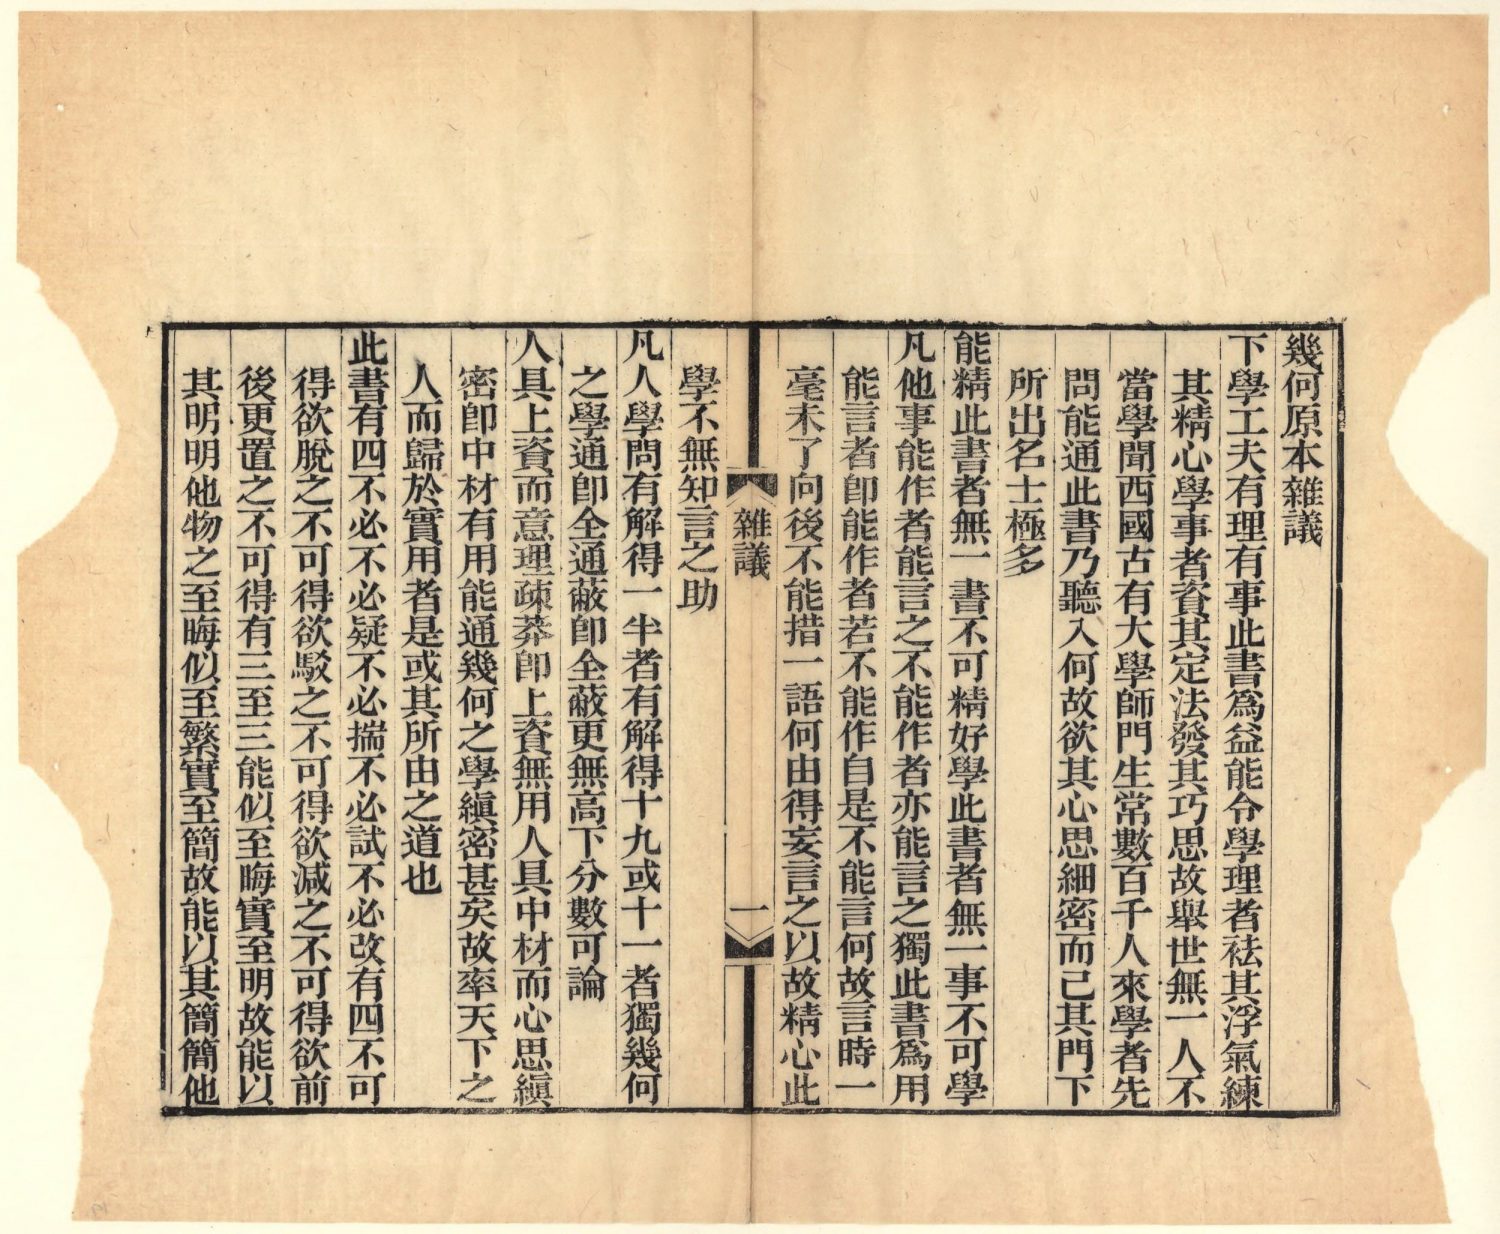 幾何原本雜議
下學工夫有理有事此書爲益能令學理者祛其浮氣練
其精心學事者資其定法發其巧思故舉世無一人不
當學聞西國古有大學師門生常數百千人來學者先
問能通此書乃聽入何故欲其心思細密而已其門下
所出名士極多
能精此書者無一書不可精好學此書者無一事不可學
凡他事能作者能言之不能作者亦能言之獨此書爲用
能言者卽能作者若不能作自是不能言何故言時一
毫未了向後不能措一語何由得妄言之以故精心此
雜議
一
學不無知言之助
凡人學問有解得一半者有解得十九或十一者獨幾何
之學通卽全通蔽卽全蔽更無高下分數可論
人具上資而意理疎莽卽上資無用人具中材而心思縝
密卽中材有用能通幾何之學縝密甚矣故率天下之
人而歸於實用者是或其所由之道也
此書有四不必不必疑不必揣不必試不必改有四不可
得欲脫之不可得欲駁之不可得欲減之不可得欲前
後更置之不可得有三至三能似至晦實至明故能以
其明明他物之至晦似至繁實至簡故能以其簡簡他